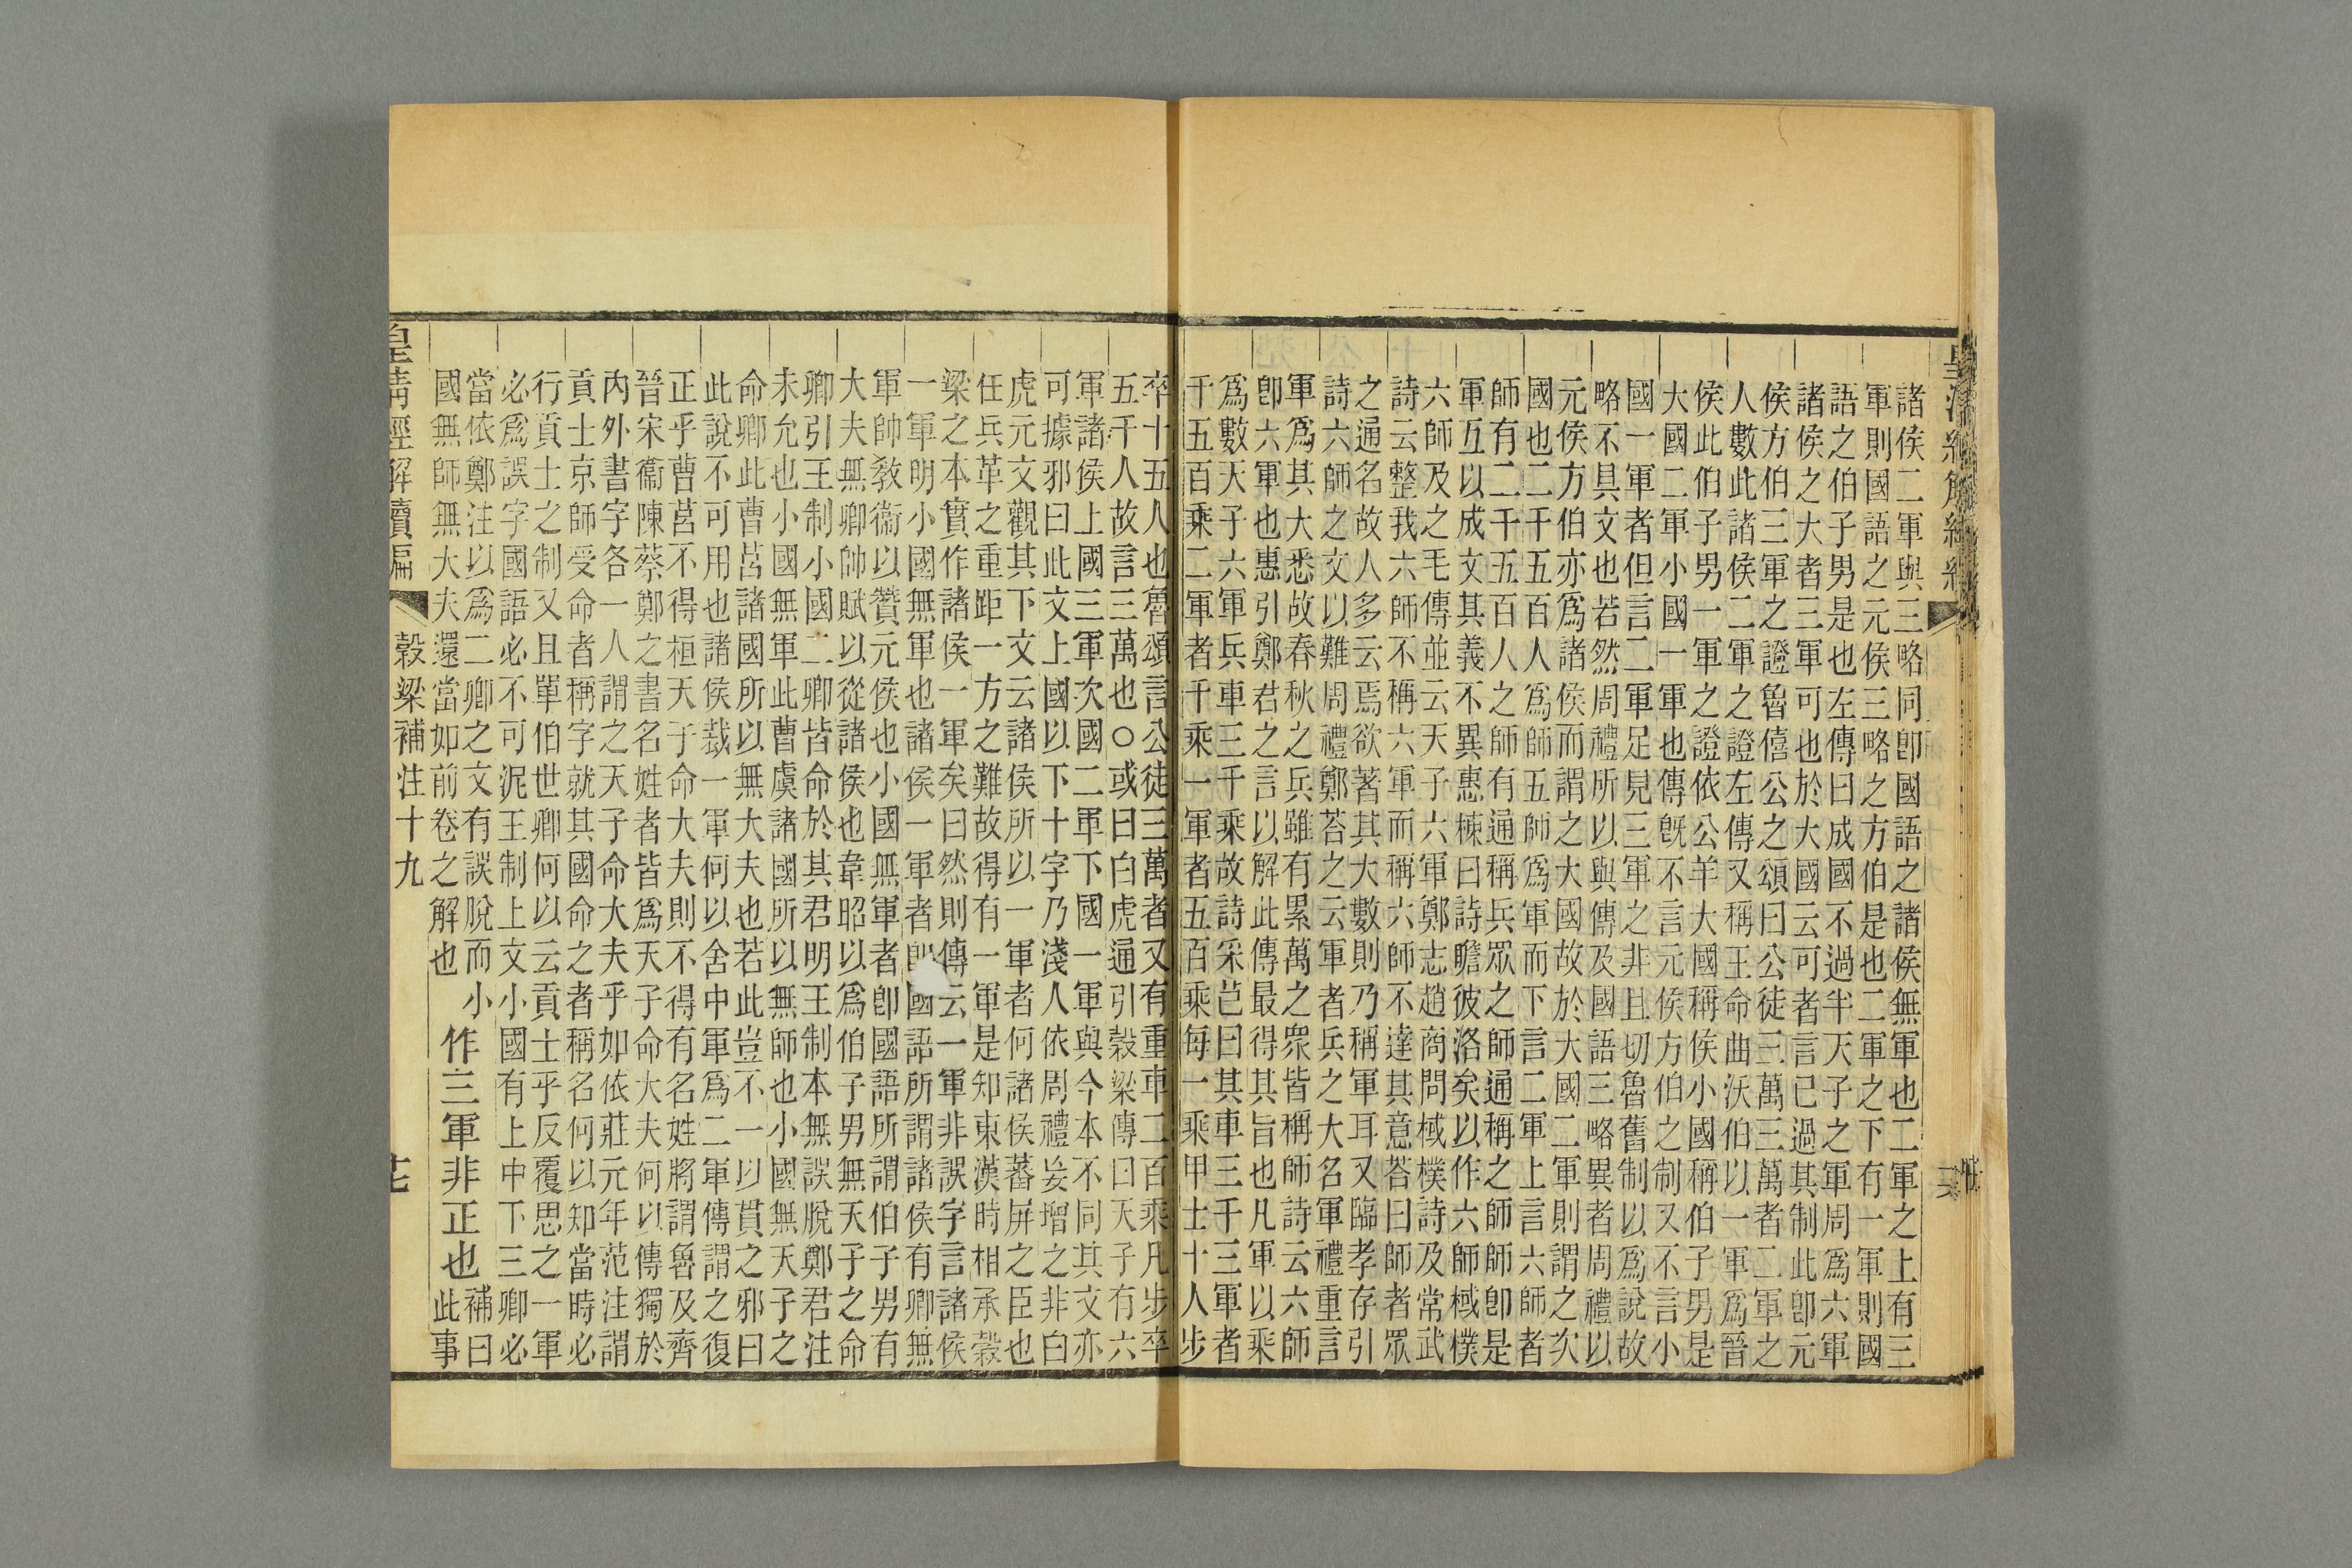 諸侯二軍與三略同卽國語之諸侯無軍也二軍之上有三
軍則國語之元侯三略之方伯是也二軍之下有一軍則國
語之伯子男是也左傳曰成國不過半天子之軍周爲六軍
諸侯之大者三軍可也於大國云可者言已過其制此卽元
侯方伯三軍之證魯僖公之頌曰公徒三萬三萬者二軍之
人數此諸侯二軍之證左傳又稱王命曲沃伯以一軍爲晉
侯此伯子男一軍之證依公羊大國稱侯小國稱伯子男是
大國二軍小國一軍也傳旣不言元侯方伯之制又不言小
國一軍者但言二軍足見三軍之非且切魯舊制以爲說故
略不具文也若然周禮所以與傳及國語三略異者周禮以
元侯方伯亦爲諸侯而謂之大國故於大國二軍則謂之次
國也二千五百人爲師五師爲軍而下言二軍上言六師者
師有二千五百人之師有通稱兵眾之師通稱之師師卽是
軍互以成文其義不異惠棟曰詩瞻彼洛矣以作六師棫樸
六師及之毛傳並云天子六軍鄭志趙商問棫樸詩及常武
詩云整我六師不稱六軍而稱六師不達其意荅曰師者眾
之通名故人多云焉欲著其大數則乃稱軍耳又臨孝存引
詩六師之文以難周禮鄭荅之云軍者兵之大名軍禮重言
軍爲其大悉故春秋之兵雖有累萬之衆皆稱師詩云六師
卽六軍也惠引鄭君之言以解此傳最得其旨也凡軍以乘
爲數天子六軍兵車三千乘故詩采芑曰其車三千三軍者
千五百乘二軍者千乘一軍者五百乘每一乘甲士十人步
卒十五人也魯頌言公徒三萬者又有重車二百乘凡步卒
五千人故言三萬也○或曰白虎通引穀梁傳曰天子有六
軍諸侯上國三軍次國二軍下國一軍與今本不同其文亦
可據邪曰此文上國以下十字乃淺人依周禮妄增之非白
虎元文觀其下文云諸侯所以一軍者何諸侯蕃屏之臣也
任兵革之重距一方之難故得有一軍是知東漢時相承穀
梁之本實作諸侯一軍矣曰然則傳云一軍非誤字言諸侯
一軍明小國無軍也諸侯一軍者卽國語所謂諸侯有卿無
軍帥敎衞以贊元侯也小國無軍者卽國語所謂伯子男有
大夫無卿帥賦以從諸侯也韋昭以爲伯子男無天子之命
卿引王制小國二卿皆命於其君明王制本無誤脫鄭君注
未允也小國無軍此曹虞諸國所以無師也小國無天子之
命卿此曹莒諸國所以無大夫也若此豈不一以貫之邪曰
此說不可用也諸侯裁一軍何以舍中軍爲二軍傳謂之復
正乎曹莒不得桓天子命大夫則不得有名姓將謂魯及齊
晉宋衞陳蔡鄭之書名姓者皆爲天子命大夫何以傳獨於
內外書字各一人謂之天子命大夫乎如依莊元年范注謂
貢士京師受命者稱字就其國命之者稱名何以知當時必
行貢士之制又且單伯世卿何以云貢士乎反覆思之一軍
必爲誤字國語必不可泥王制上文小國有上中下三卿必
當依鄭注以爲二卿之文有誤脫而小
國無師無大夫還當如前卷之解也
作三軍非正也補曰此事
皇淸經解續編
穀梁補注十九